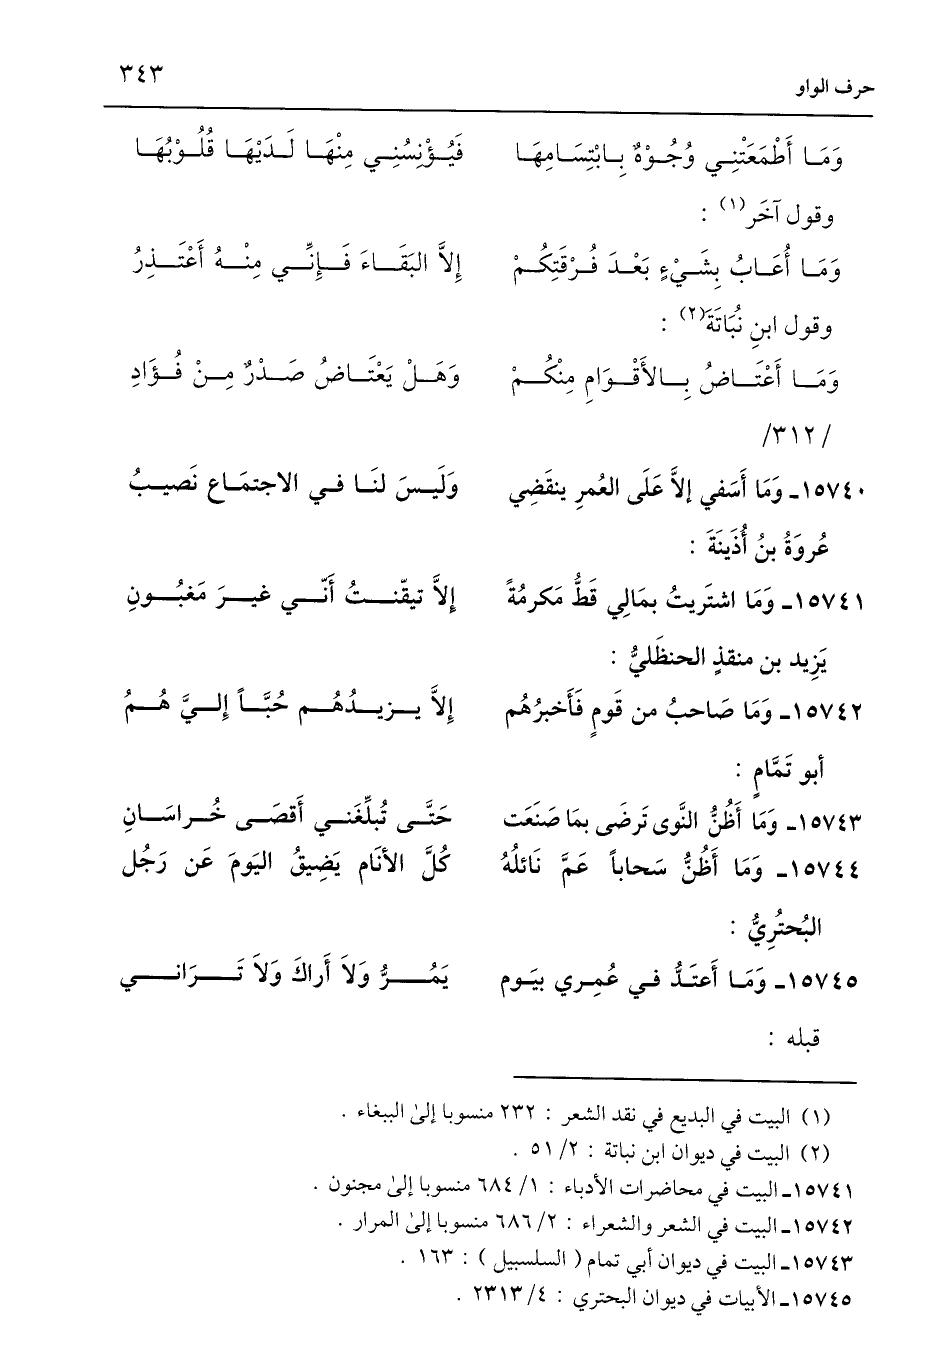 حرف الواو ٣٤٣
وَمَا أَطْمَعَتْنِي وُجُوْهٌ بِابْتِسَامِهَا فَيُؤْنِسُنِي مِنْهَا لَدَيْهَا قُلُوْبُهَا
وقول آخَر(١) :
وَمَا أُعَابُ بِشَيْءٍ بَعْدَ فُرْقَتِكُمْ إِلاَّ البَقَاءَ فَإِنِّي مِنْهُ أَعْتَذِرُ
وقول ابنِ نُبَاتَةَ(٢) :
وَمَا أَعْتَاضُ بِالأَقْوَامِ مِنْكُمْ وَهَلْ يَعْتَاضُ صَدْرٌ مِنْ فُؤَادِ
/٣١٢/
١٥٧٤٠ـ وَمَا أَسَفي إلاَّ عَلَى العُمرِ ينقَضِي وَلَيسَ لنَا في الاجتمَاع نَصيبُ
عُروَةُ بنُ أُذَينَةَ :
١٥٧٤١ـ وَمَا اشتَريتُ بمَالِي قَطُّ مَكرمُةً إلاَّ تيقّنتُ أنّي غيرَ مَغبُونِ
يَزِيد بن منقذٍ الحنظَليُّ :
١٥٧٤٢ـ وَمَا صَاحبُ من قَومٍ فَأَخبرُهُم إلاَّ يزيدُهُم حُبَّاً إليَّ هُمُ
أبو تَمَّامٍ :
١٥٧٤٣ـ وَمَا أَظُنُّ النَّوى تَرضَى بمَا صَنَعَت حَتَّى تُبلِّغَني أَقصَى خُراسَانِ
١٥٧٤٤ـ وَمَا أَظُنُّ سَحاباً عَمَّ نَائلُهُ كُلَّ الأنَام يَضِيقُ اليَومَ عَن رَجُل
البُحتُرِيُّ :
١٥٧٤٥ـ وَمَا أَعتَدُّ في عُمِري بيَوم يَمُرُّ وَلاَ أَراكَ وَلاَ تَرَاني
قبله :
(١) البيت في البديع في نقد الشعر : ٢٣٢ منسوبا إلىٰ الببغاء .
(٢) البيت في ديوان ابن نباتة : ٢/ ٥١ .
١٥٧٤١ـ البيت في محاضرات الأدباء : ١/ ٦٨٤ منسوبا إلىٰ مجنون .
١٥٧٤٢ـ البيت في الشعر والشعراء : ٢/ ٦٨٦ منسوبا إلىٰ المرار .
١٥٧٤٣ـ البيت في ديوان أبي تمام ( السلسبيل ) : ١٦٣ .
١٥٧٤٥ـ الأبيات في ديوان البحتري : ٤/ ٢٣١٣ .